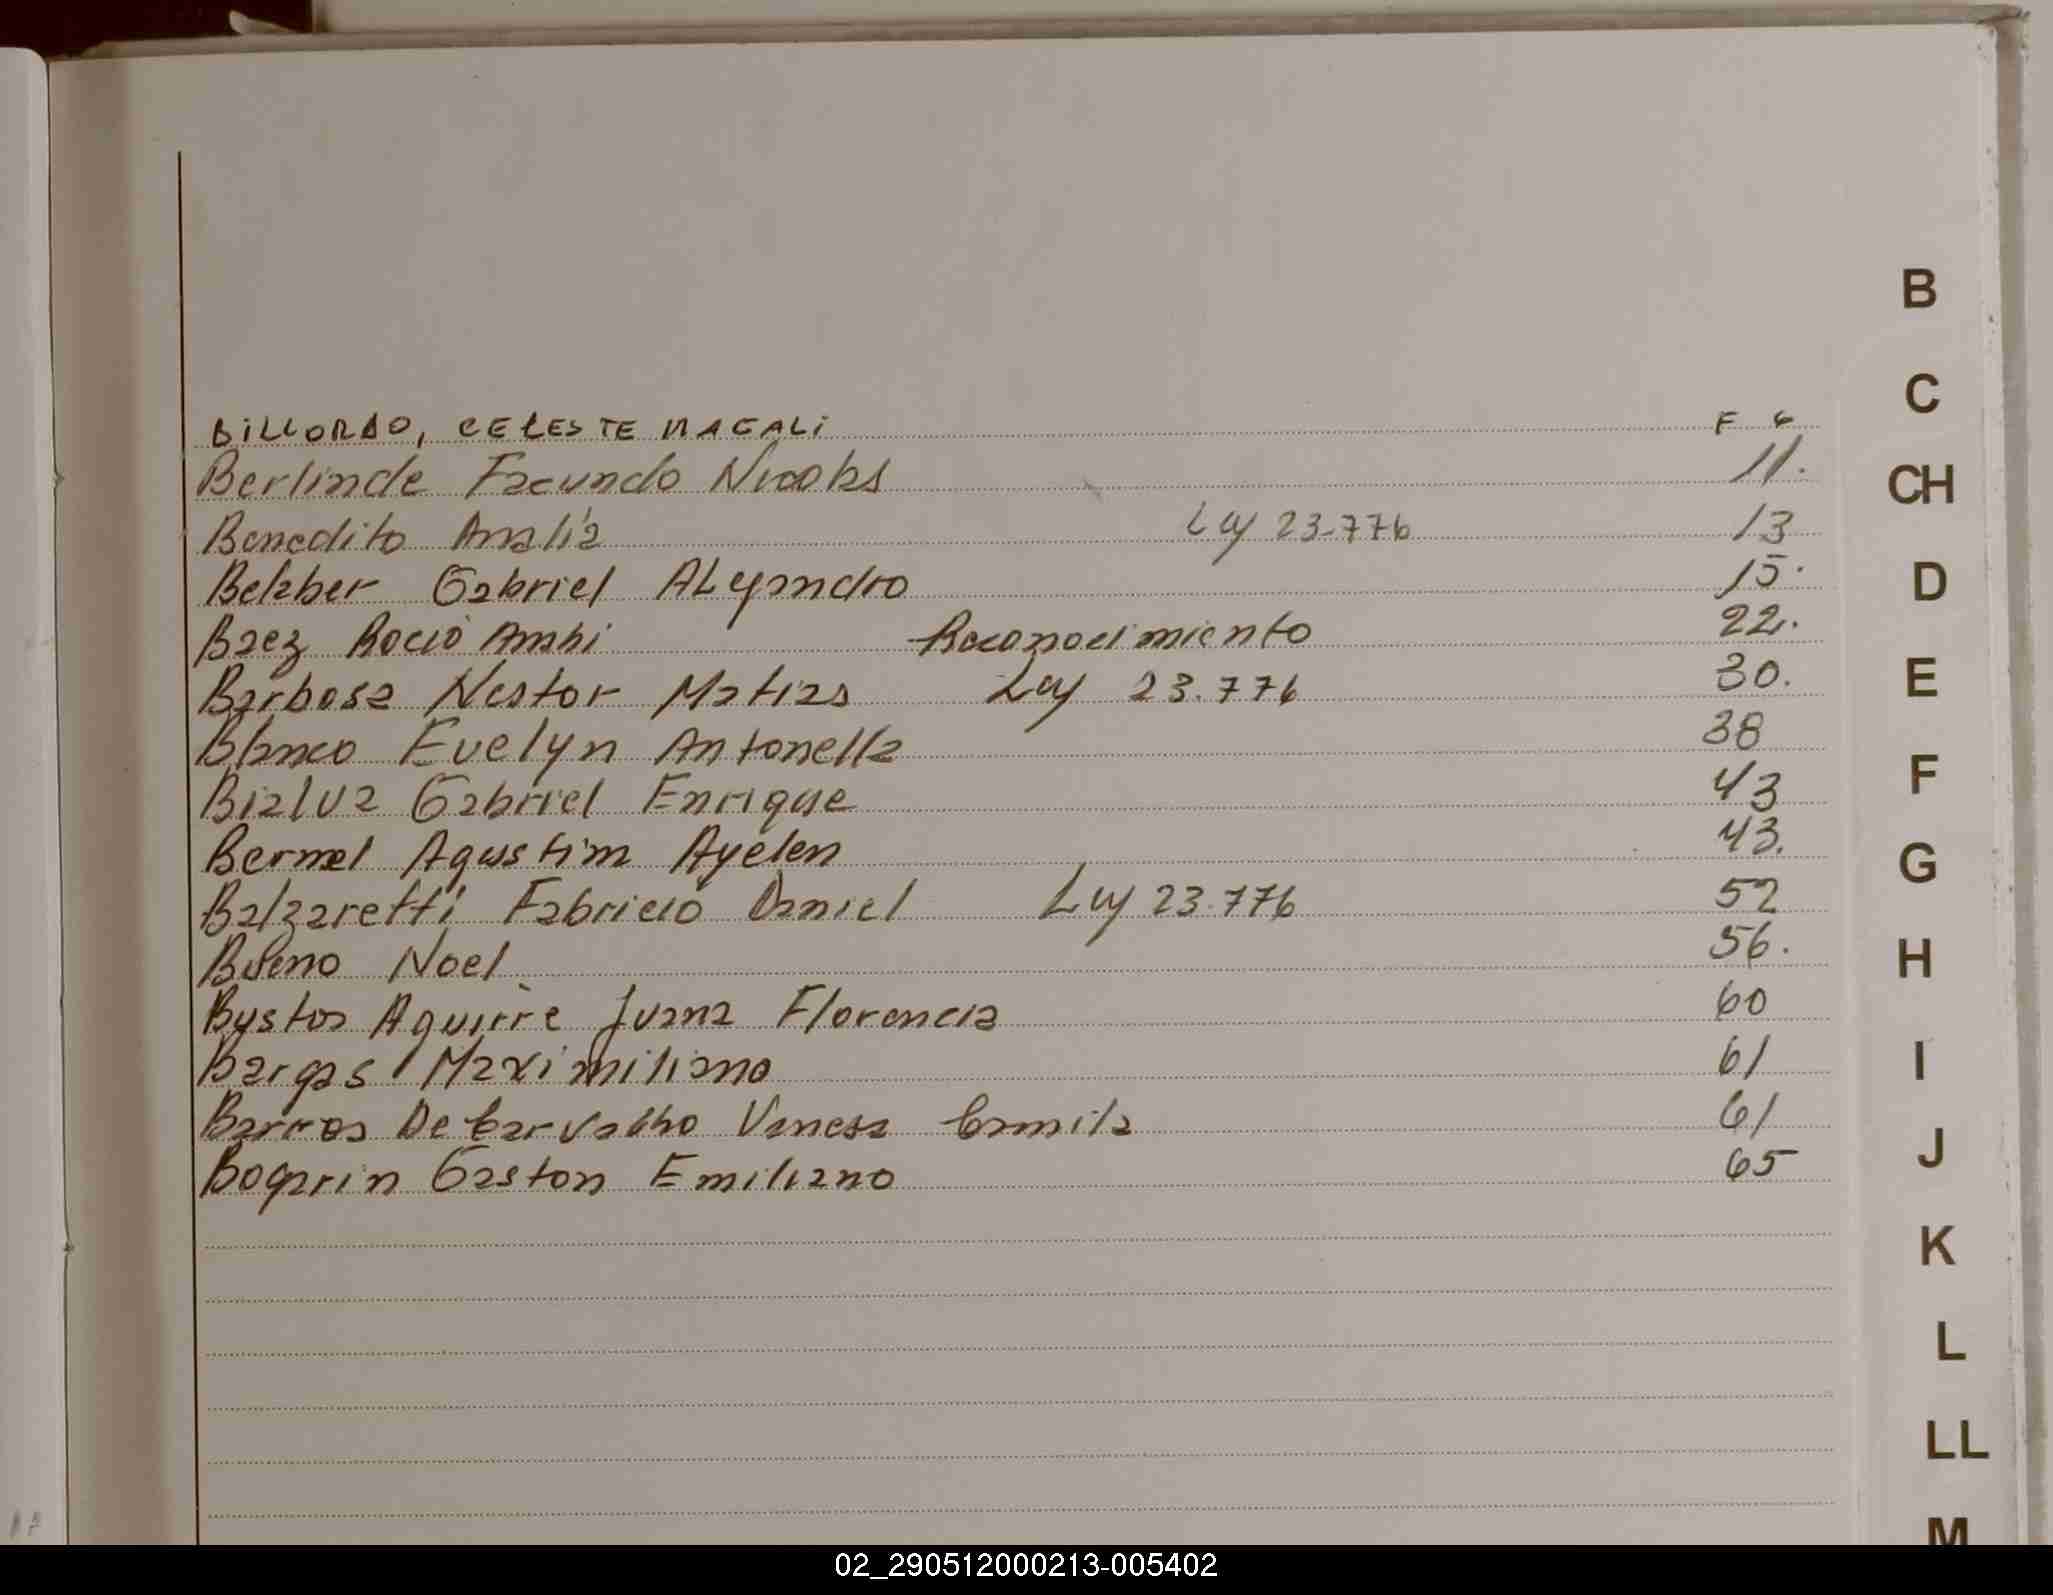 BILLORDO, CELESTE MAGALI F 6
Berlinde Facundo Nicolas 11.
Benedito Analía Ley 23.776 13
Belaber Gabriel Alejandro 15.
Baez Rocio Anahi Reconocimiento 22.
Barbosa Nestor Matias Ley 23.776 30.
Blanco Evelyn Antonella 38
Bialva Gabriel Enrique 43
Bernal Agustin Ayelen 43.
Balzaretti Fabricio Daniel Ley 23.776 52
Bueno Noel 56.
Bustos Aguirre Juana Florencia 60
Bargas Maximiliano 61
Barros De Carvalho Vanesa Camila 61
Bogarin Gaston Emiliano 65
B
C
CH
D
E
F
G
H
I
J
K
L
LL
M
02_290512000213-005402